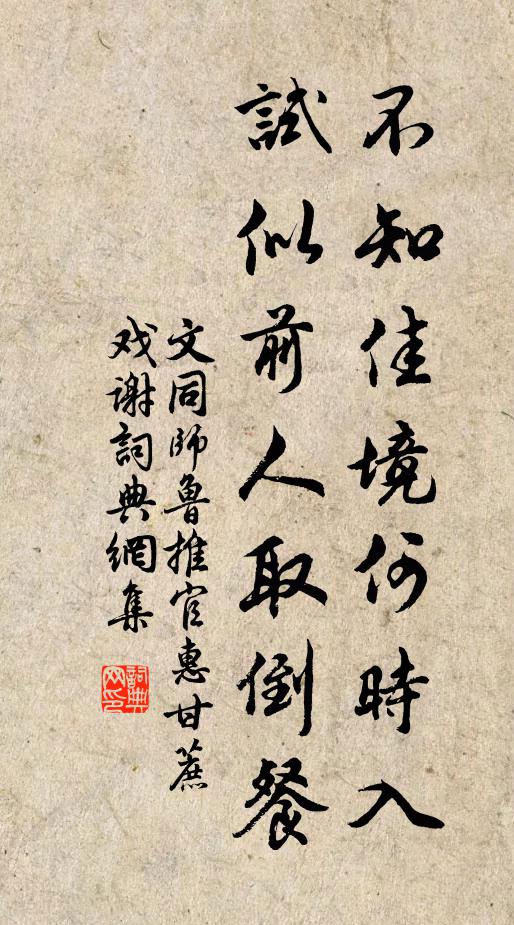 不知佳境何時入
試似前人取倒餐
文同師魯推官惠甘蔗
戏谢詞典網集
詞典网印